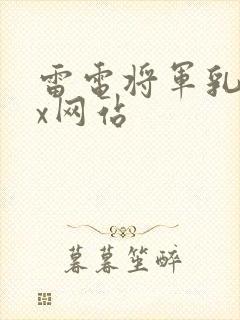 雷電将軍乳
x网站
暮暮笙醉